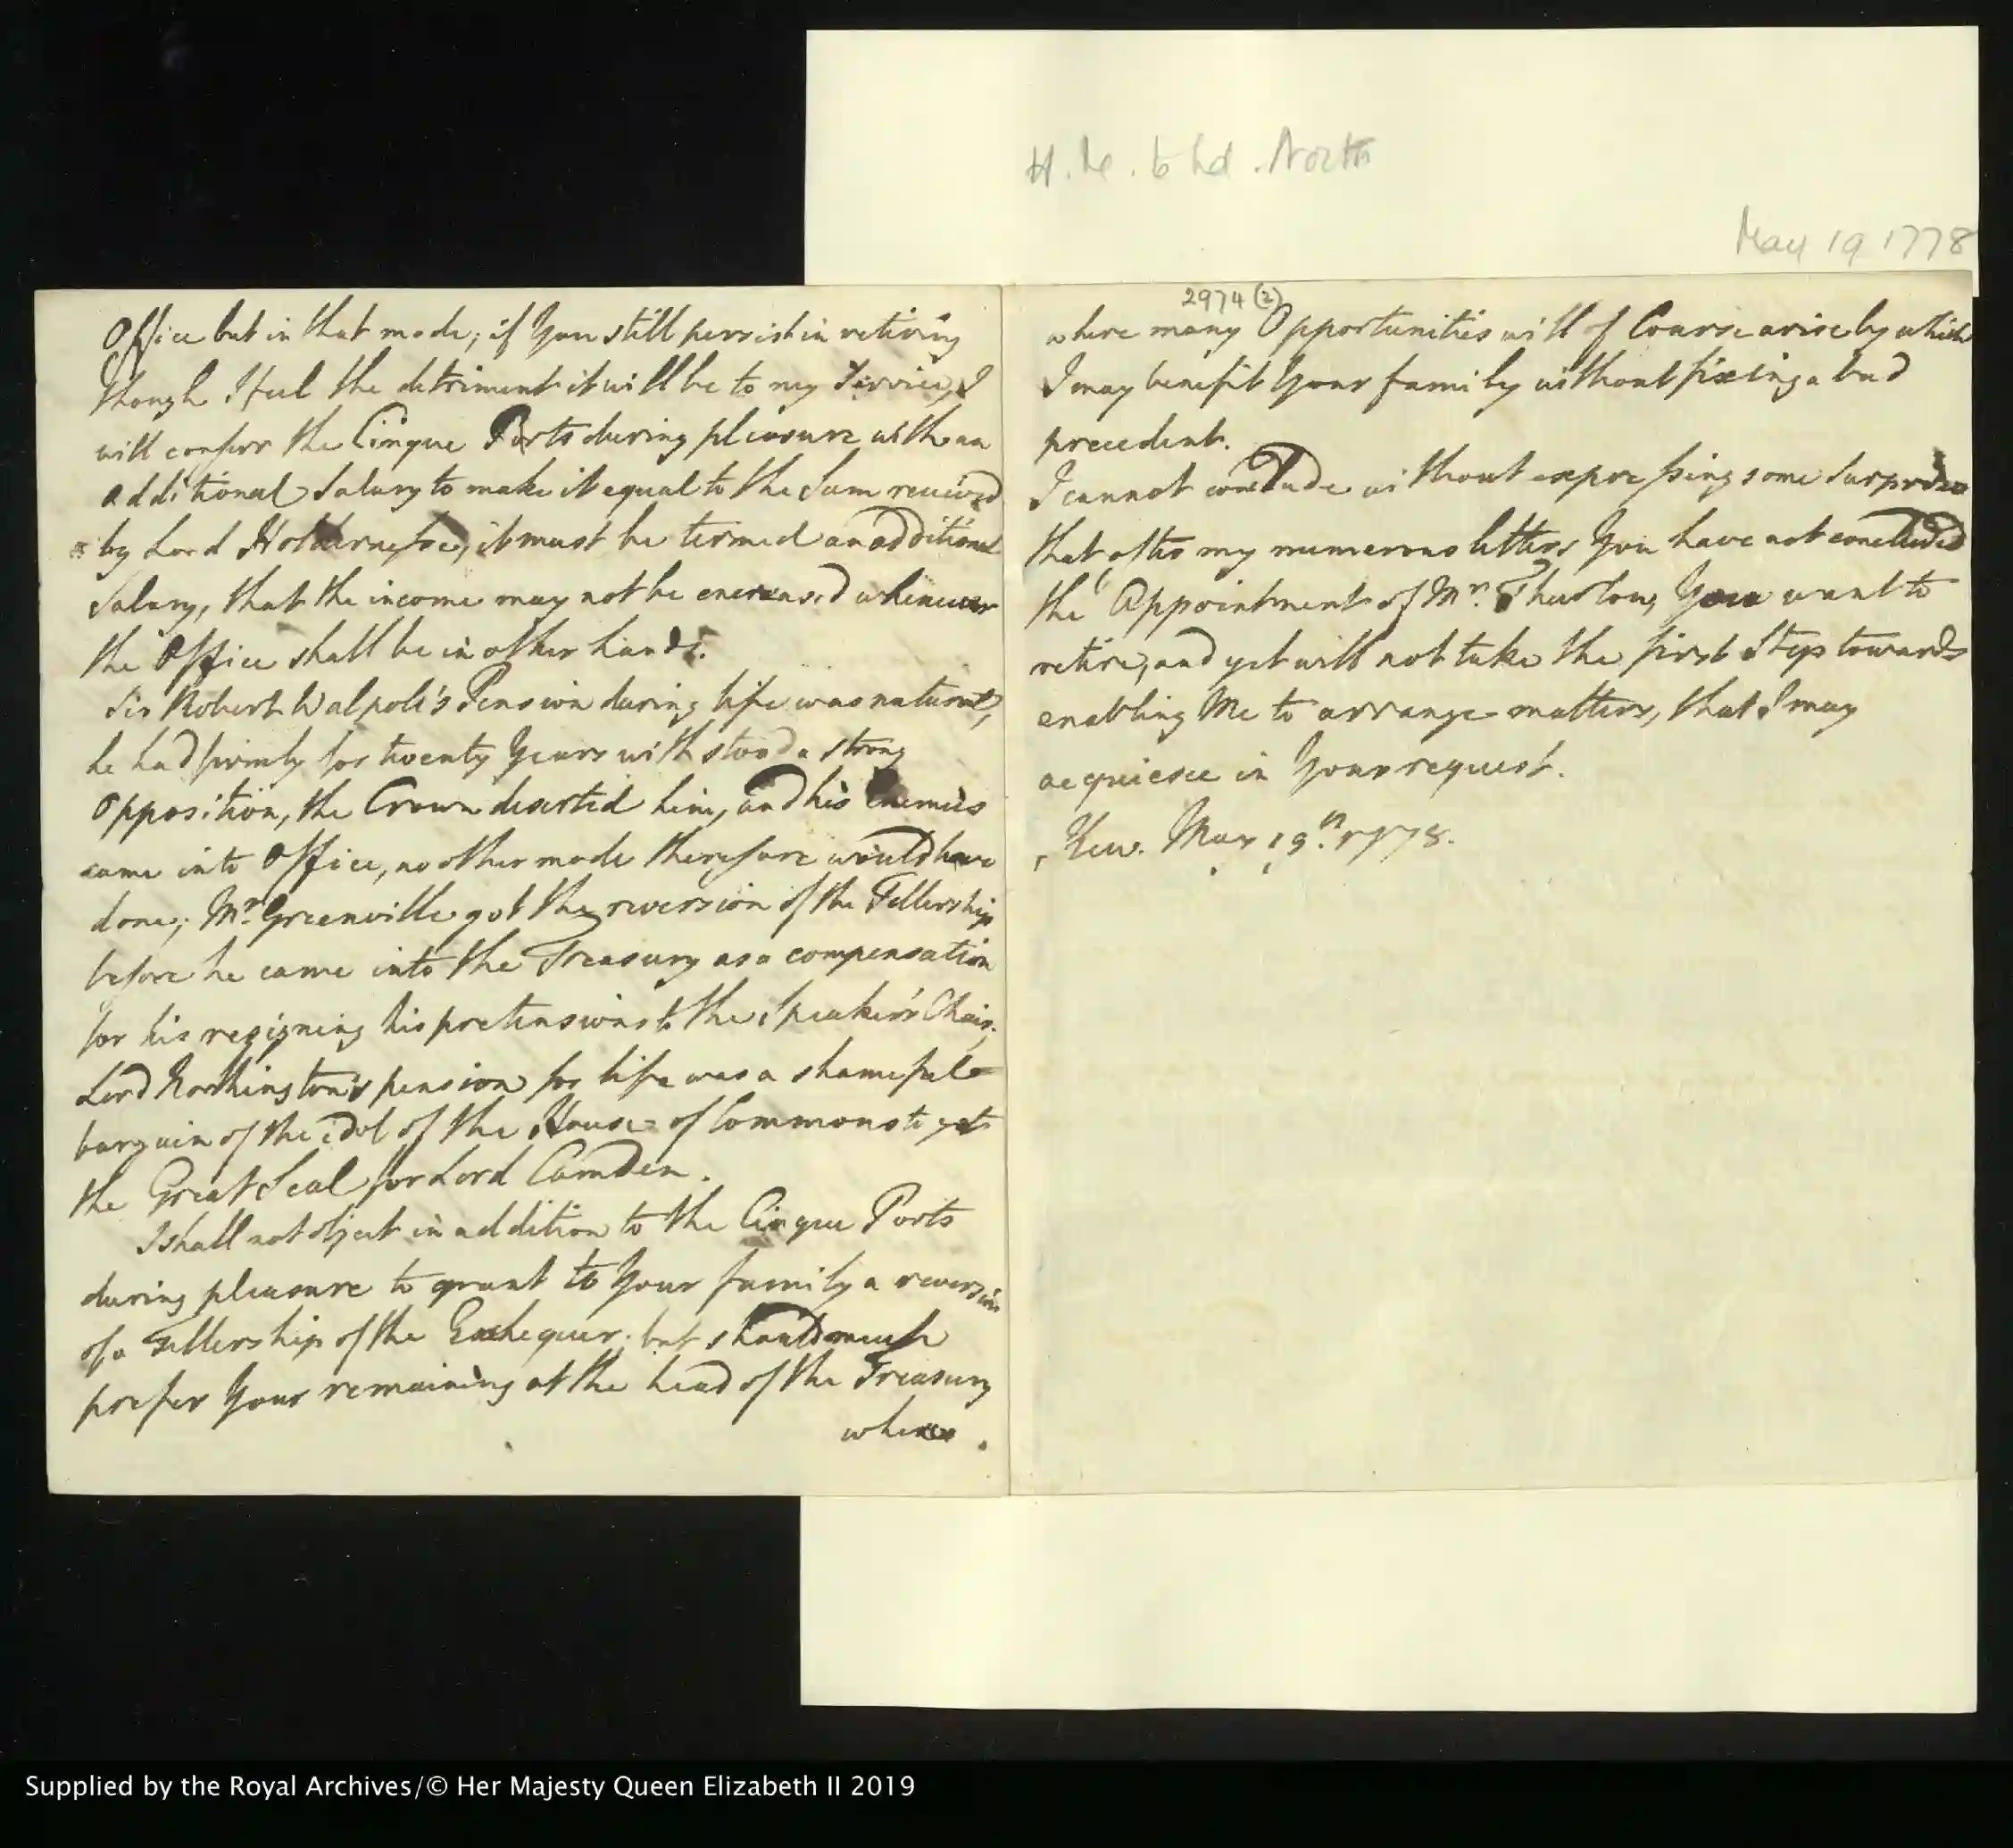 H. M. to Ld. North
May 19 1778
Office but in that mode; if You still persist in retiring
though I feel the detriment it will be to my Service, I
will conferr the Cinque Ports during pleasure with an
additional Salary to make it equal to the Sum received
by Lord Holdernesse, it must be termed an additional
Salary, that the income may not be encreased whenever
the Office shall be in other hands.
Sir Robert Walpole's Pension during life was natural,
he had firmly for twenty Years withstood a strong
Opposition, the Crown deserted him, and his Enemies
came into Office, no other mode therefore would have
done; Mr. Greenville got the reversion of the Tellership
before he came into the Treasury as a compensation
for his resigning his pretensions to the Speaker's Chair;
Lord Northington's pension for life was a shameful
bargain of the idol of the House of Commons to get
the Great Seal for Lord Camden.
I shall not object in addition to the Cinque Ports
during pleasure to grant to Your family a reversion
of a Tellership of the Exchequer. but should much
prefer Your remaining at the head of the Treasury
where
2974 (2)
where many Opportunities will of Course arise by which
I may benefit Your family without fixing a bad
precedent.
I cannot conclude without expressing some Surprize
that after my numerous letters You have not concluded
the Appointment of Mr. Thurlow, You want to
retire, and yet will not take the first Step towards
enabling Me to arrange matters, that I may
acquiesce in Your request.
Kew. May 19th. 1778.
Supplied by the Royal Archives/© Her Majesty Queen Elizabeth II 2019